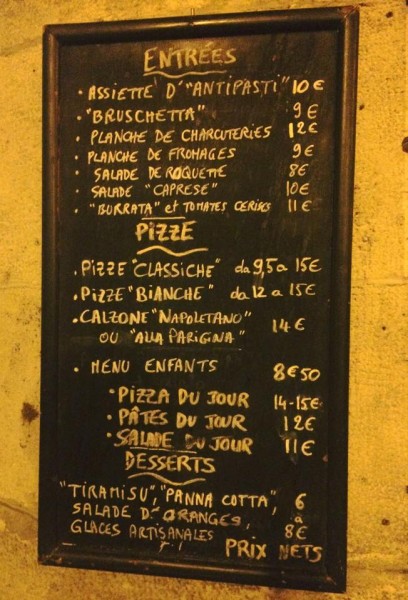 ENTRÉES
• ASSIETTE D'"ANTIPASTI" 10€
• "BRUSCHETTA" 9€
• PLANCHE DE CHARCUTERIES 12€
• PLANCHE DE FROMAGES 9€
• SALADE DE ROQUETTE 8€
• SALADE "CAPRESE" 10€
• "BURRATA" et TOMATES CERISES 11€
PIZZE
• PIZZE "CLASSICHE" da 9,5 a 15€
• PIZZE "BIANCHE" da 12 a 15€
• CALZONE "NAPOLETANO"
OU "ALLA PARIGINA" 14€
• MENU ENFANTS 8€50
• PIZZA DU JOUR 14-15€
• PÂTES DU JOUR 12€
• SALADE DU JOUR 11€
DESSERTS
"TIRAMISU", "PANNA COTTA", 6
SALADE D'ORANGES, à
GLACES ARTISANALES 8€
PRIX NETS